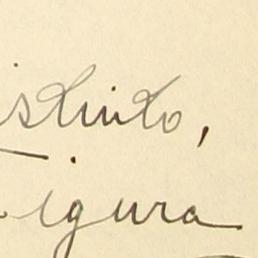 istinto,
igura